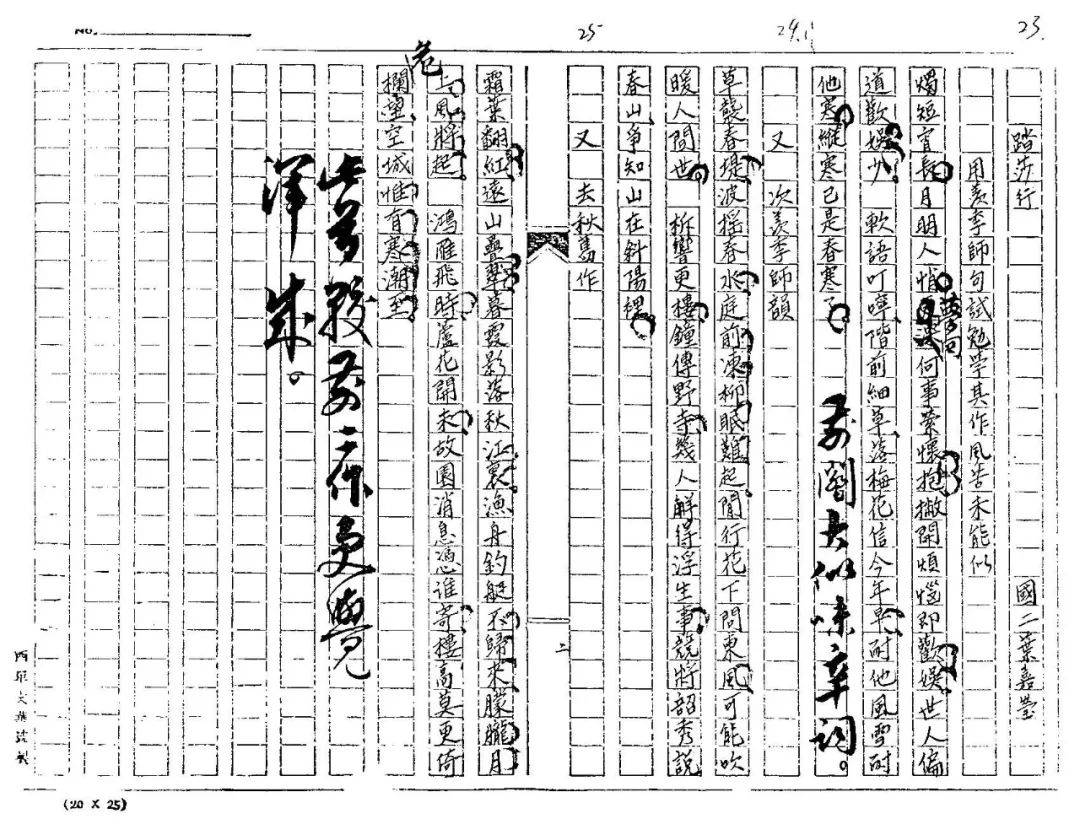 No.
25
24.
23.
踏莎行 國二葉嘉瑩
用羨季師句試勉學其作風苦未能似
燭短宵長月明人悄夢回何事縈懷抱撇開煩惱即歡娛世人偏
道歡娛少 軟語叮嚀階前細草落梅花信今年早耐他風雪耐
他寒縱寒已是春寒了
前闋大似味辛詞。
又 次羨季師韻
草襲春堤波搖春水庭前凍柳眠難起閒行花下問東風可能吹
暖人間世 柝響更樓鐘傳野寺幾人解得浮生事競將韶秀說
春山爭知山在斜陽裡
又 去秋舊作
二
霜葉翻紅遠山疊翠暮霞影落秋江裏漁舟釣艇不歸來朦朧月
上風將起 鴻雁飛時蘆花開未故園消息憑誰寄樓高莫更倚
危欄望空城惟有寒潮至
此首較前二作更覺
渾成。
西單文華
(20 X 25)